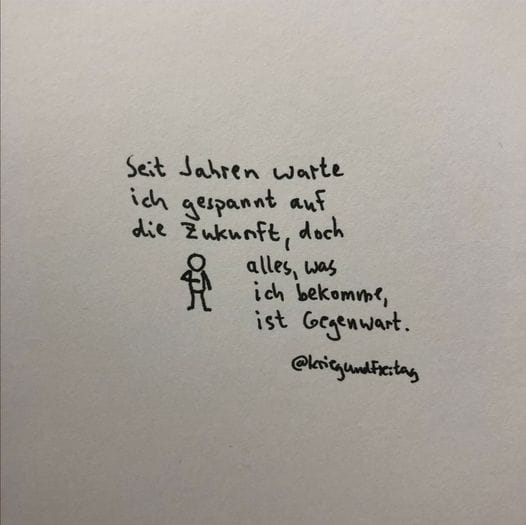 Seit Jahren warte
ich gespannt auf
die Zukunft, doch
alles, was
ich bekomme,
ist Gegenwart.
@kriegundfreitag